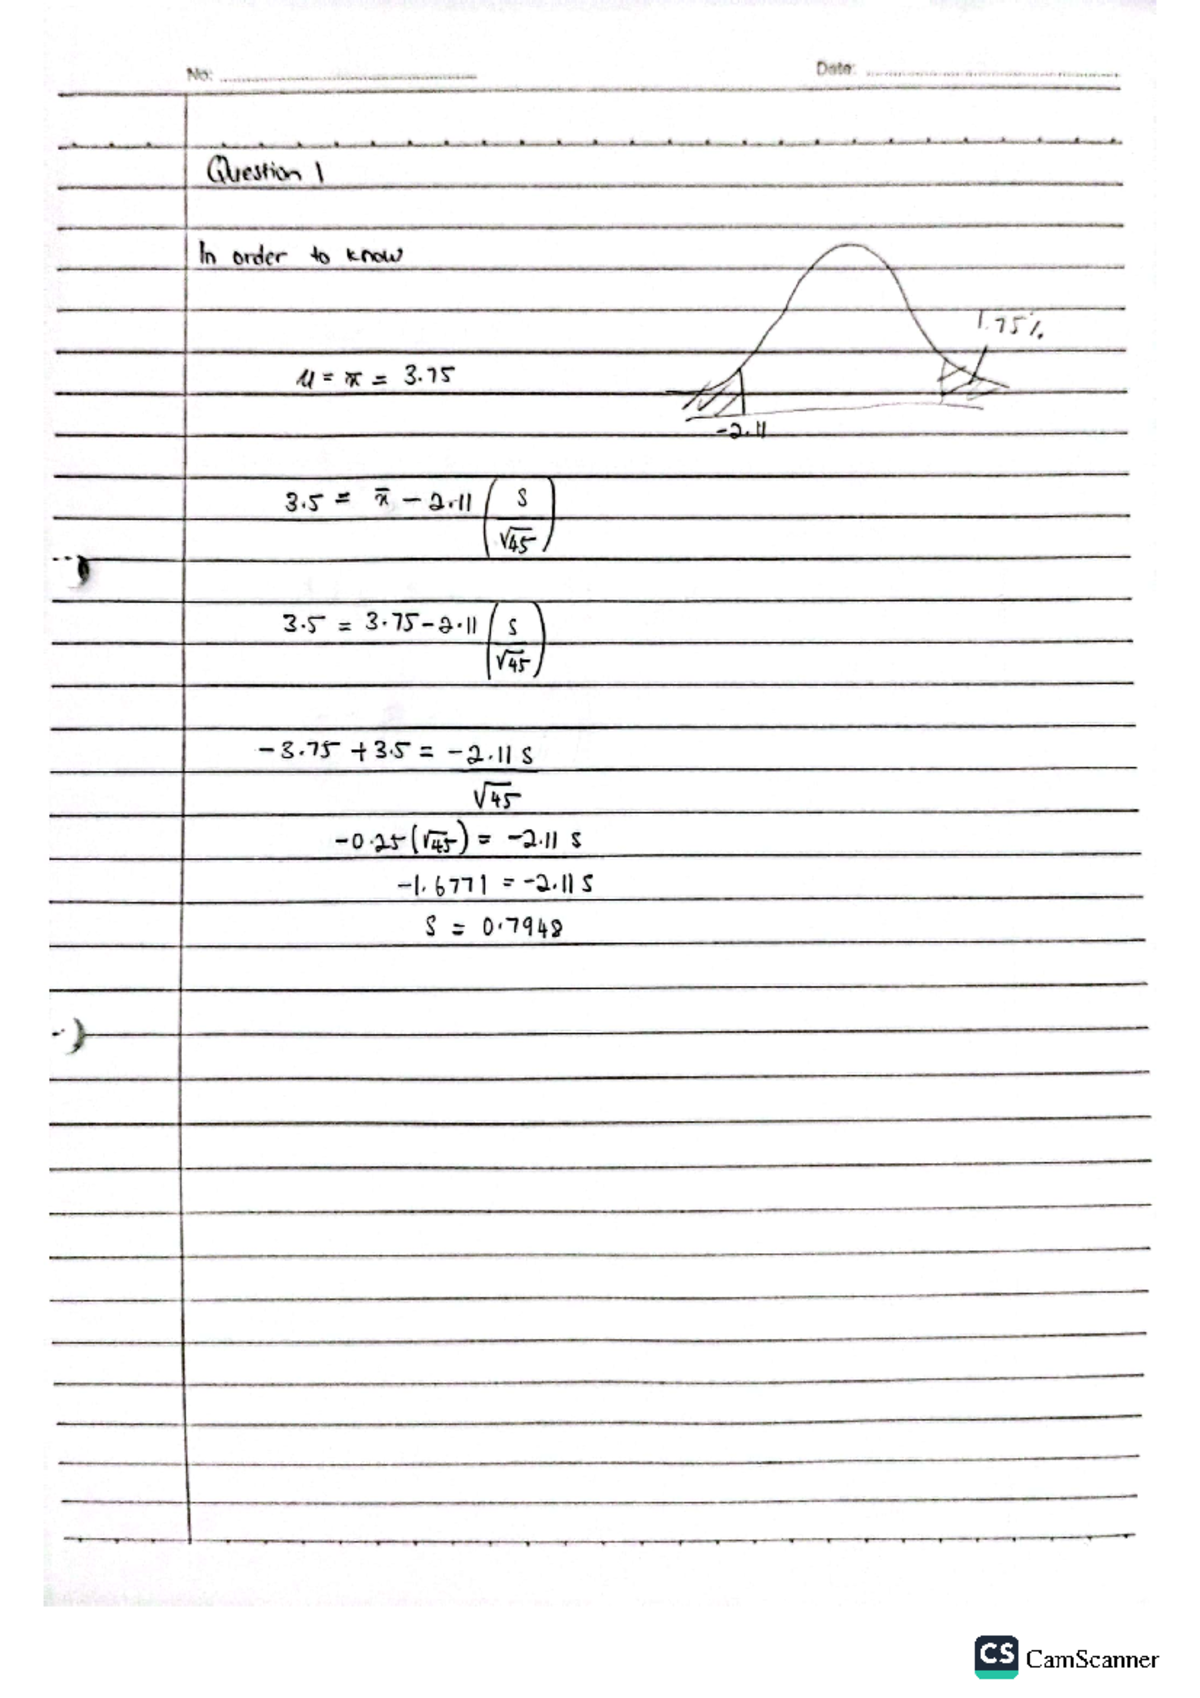 No:
Date:
Question 1
In order to know
1.75%
μ = x̄ = 3.75
-2.11
3.5 = x̄ - 2.11 (s/√45)
3.5 = 3.75 - 2.11 (s/√45)
-3.75 + 3.5 = -2.11 s/√45
-0.25 (√45) = -2.11 s
-1.6771 = -2.11 s
s = 0.7948
CS CamScanner